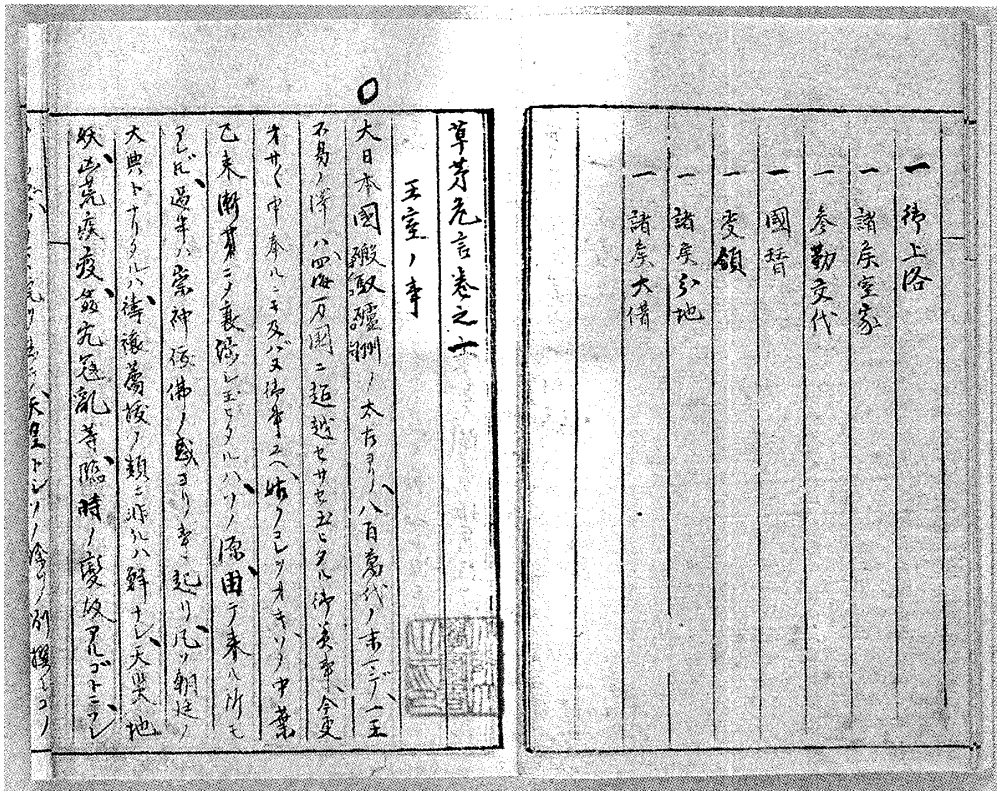 一 御上洛
一 諸矦室家
一 參勤交代
一 國替
一 受領
一 諸矦分地
一 諸矦大借
草茅危言巻之一
王室ノ事
大日本國磤馭盧洲ノ太古ヨリ八百萬代ノ末マデ一王
不易ノ澤ハ四海万國ニ超越セサセ玉ヒタル御美事今更
オサ〳〵申奉ルニモ及バヌ御事ユヘ姑クコレヲオキソノ中葉
已来漸算ニノ衰頽シ玉ヒタルハソノ源由テ来ル所モ
アレド過半ハ崇神佞佛ノ惑ヨリ事起リ凡ソ朝廷ノ
大典トナリタルハ祷禳薦拔ノ類ニ非ルハ鮮ナシ天災地
妖凶荒疾疫姦宄冦亂等臨時ノ變故アルゴトニ
天皇トシソノ餘リ別